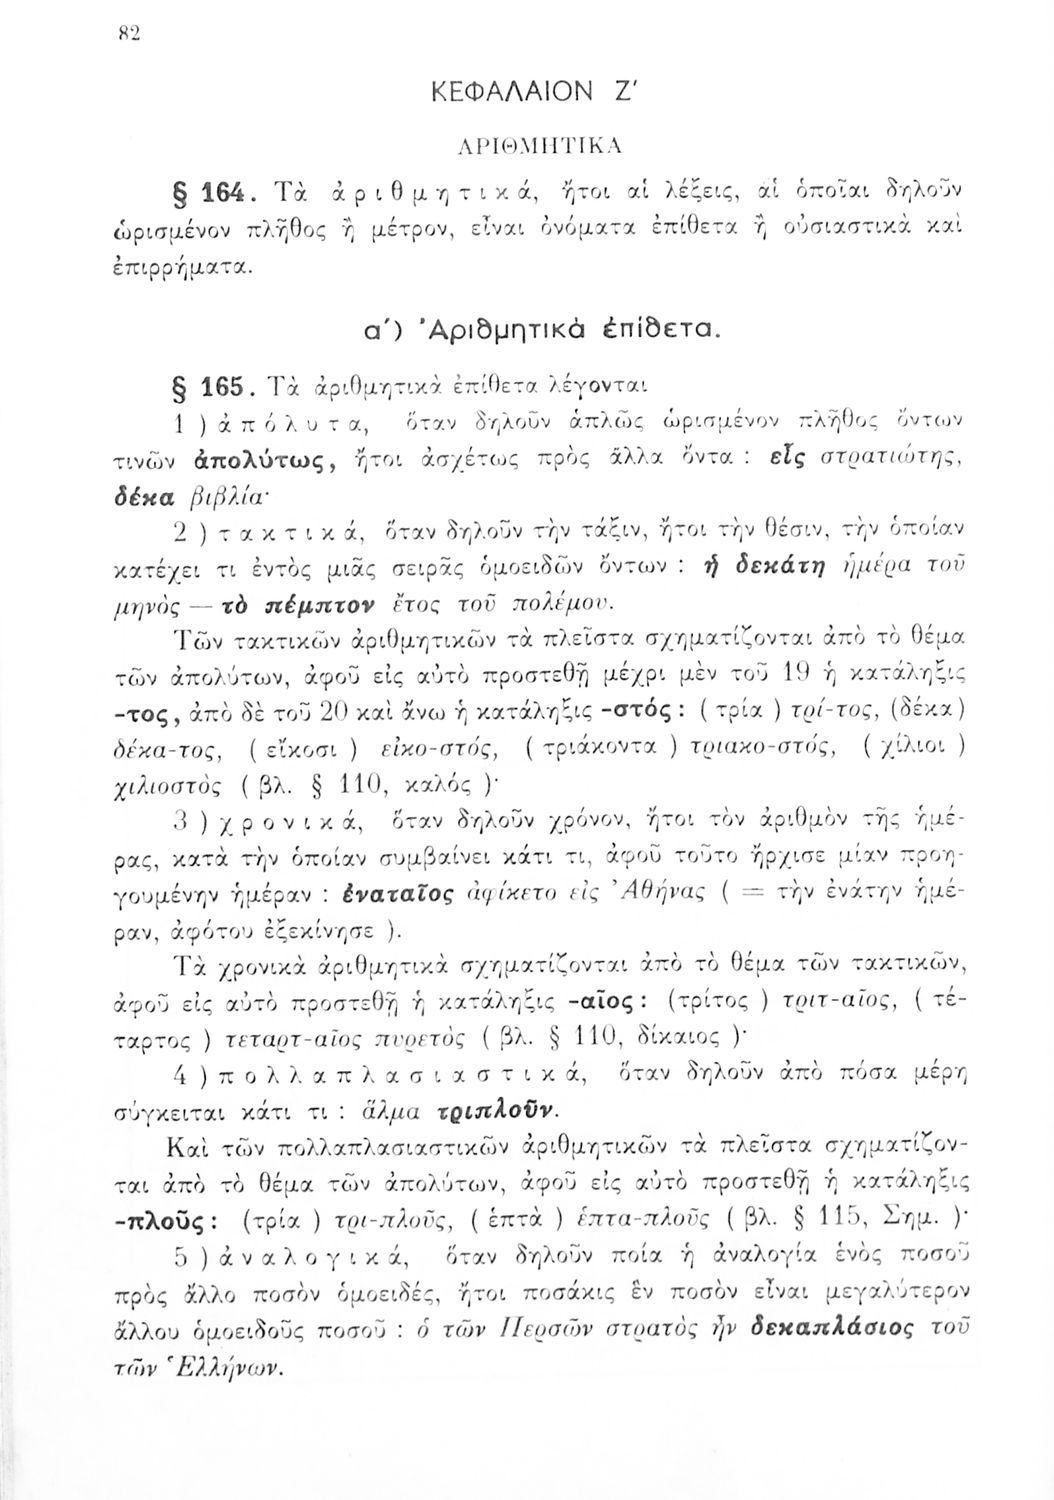 82
ΚΕΦΑΛΑΙΟΝ Ζ'
ΑΡΙΘΜΗΤΙΚΑ
§ 164. Τὰ ἀριθμητικά, ἤτοι αἱ λέξεις, αἱ ὁποῖαι δηλοῦν
ὡρισμένον πλῆθος ἢ μέτρον, εἶναι ὀνόματα ἐπίθετα ἢ οὐσιαστικὰ καὶ
ἐπιρρήματα.
α') Ἀριθμητικὰ ἐπίθετα.
§ 165. Τὰ ἀριθμητικὰ ἐπίθετα λέγονται
1 ) ἀπόλυτα, ὅταν δηλοῦν ἁπλῶς ὡρισμένον πλῆθος ὄντων
τινῶν ἀπολύτως, ἤτοι ἀσχέτως πρὸς ἄλλα ὄντα : εἷς στρατιώτης,
δέκα βιβλία·
2 ) τακτικά, ὅταν δηλοῦν τὴν τάξιν, ἤτοι τὴν θέσιν, τὴν ὁποίαν
κατέχει τι ἐντὸς μιᾶς σειρᾶς ὁμοειδῶν ὄντων : ἡ δεκάτη ἡμέρα τοῦ
μηνὸς — τὸ πέμπτον ἔτος τοῦ πολέμου.
Τῶν τακτικῶν ἀριθμητικῶν τὰ πλεῖστα σχηματίζονται ἀπὸ τὸ θέμα
τῶν ἀπολύτων, ἀφοῦ εἰς αὐτὸ προστεθῇ μέχρι μὲν τοῦ 19 ἡ κατάληξις
-τος, ἀπὸ δὲ τοῦ 20 καὶ ἄνω ἡ κατάληξις -στός : ( τρία ) τρί-τος, (δέκα)
δέκα-τος, ( εἴκοσι ) εἰκο-στός, ( τριάκοντα ) τριακο-στός, ( χίλιοι )
χιλιοστὸς ( βλ. § 110, καλός )·
3 ) χρονικά, ὅταν δηλοῦν χρόνον, ἤτοι τὸν ἀριθμὸν τῆς ἡμέ-
ρας, κατὰ τὴν ὁποίαν συμβαίνει κάτι τι, ἀφοῦ τοῦτο ἤρχισε μίαν προη-
γουμένην ἡμέραν : ἐναταῖος ἀφίκετο εἰς Ἀθήνας ( = τὴν ἐνάτην ἡμέ-
ραν, ἀφότου ἐξεκίνησε ).
Τὰ χρονικὰ ἀριθμητικὰ σχηματίζονται ἀπὸ τὸ θέμα τῶν τακτικῶν,
ἀφοῦ εἰς αὐτὸ προστεθῇ ἡ κατάληξις -αῖος : (τρίτος ) τριτ-αῖος, ( τέ-
ταρτος ) τεταρτ-αῖος πυρετὸς ( βλ. § 110, δίκαιος )·
4 ) πολλαπλασιαστικά, ὅταν δηλοῦν ἀπὸ πόσα μέρη
σύγκειται κάτι τι : ἅλμα τριπλοῦν.
Καὶ τῶν πολλαπλασιαστικῶν ἀριθμητικῶν τὰ πλεῖστα σχηματίζον-
ται ἀπὸ τὸ θέμα τῶν ἀπολύτων, ἀφοῦ εἰς αὐτὸ προστεθῇ ἡ κατάληξις
-πλοῦς : (τρία ) τρι-πλοῦς, ( ἑπτὰ ) ἑπτα-πλοῦς ( βλ. § 115, Σημ. )·
5 ) ἀναλογικά, ὅταν δηλοῦν ποία ἡ ἀναλογία ἑνὸς ποσοῦ
πρὸς ἄλλο ποσὸν ὁμοειδές, ἤτοι ποσάκις ἓν ποσὸν εἶναι μεγαλύτερον
ἄλλου ὁμοειδοῦς ποσοῦ : ὁ τῶν Περσῶν στρατὸς ἦν δεκαπλάσιος τοῦ
τῶν Ἑλλήνων.